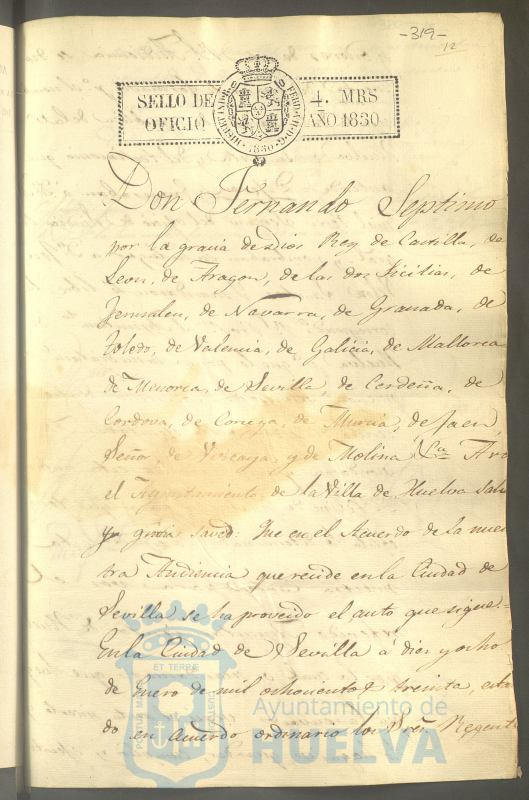 -319-
12
SELLO DE 4. MRS
OFICIO AÑO 1830
HISP. ET IND. R. FERD. VII. D. G.
·1830·
Don Fernando Septimo
por la gracia de Dios Rey de Castilla, de
Leon, de Aragon, de las dos Sicilias, de
Jerusalen, de Navarra, de Granada, de
Toledo, de Valencia, de Galicia, de Mallorca
de Menorca, de Sevilla, de Cerdeña, de
Cordova, de Corcega, de Murcia, de Jaen,
Señor de Viscaya, y de Molina &ca A vo
el Ayuntamiento de la Villa de Huelva salu
y gracia saved: Que en el Acuerdo de la nues
tra Audiencia que recide en la Ciudad de
Sevilla se ha proveido el auto que sigue=
En la Ciudad de Sevilla á dies y ocho
de Enero de mil ochocientos treinta, estan
do en acuerdo ordinario los Sres. Regente
PORTUS MARIS ET TERRÆ CUSTODIA
Ayuntamiento de
HUELVA